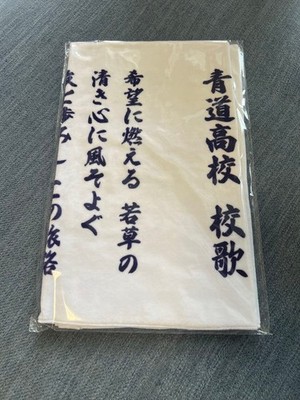 青道高校 校歌
希望に燃える 若草の
清き心に風そよぐ